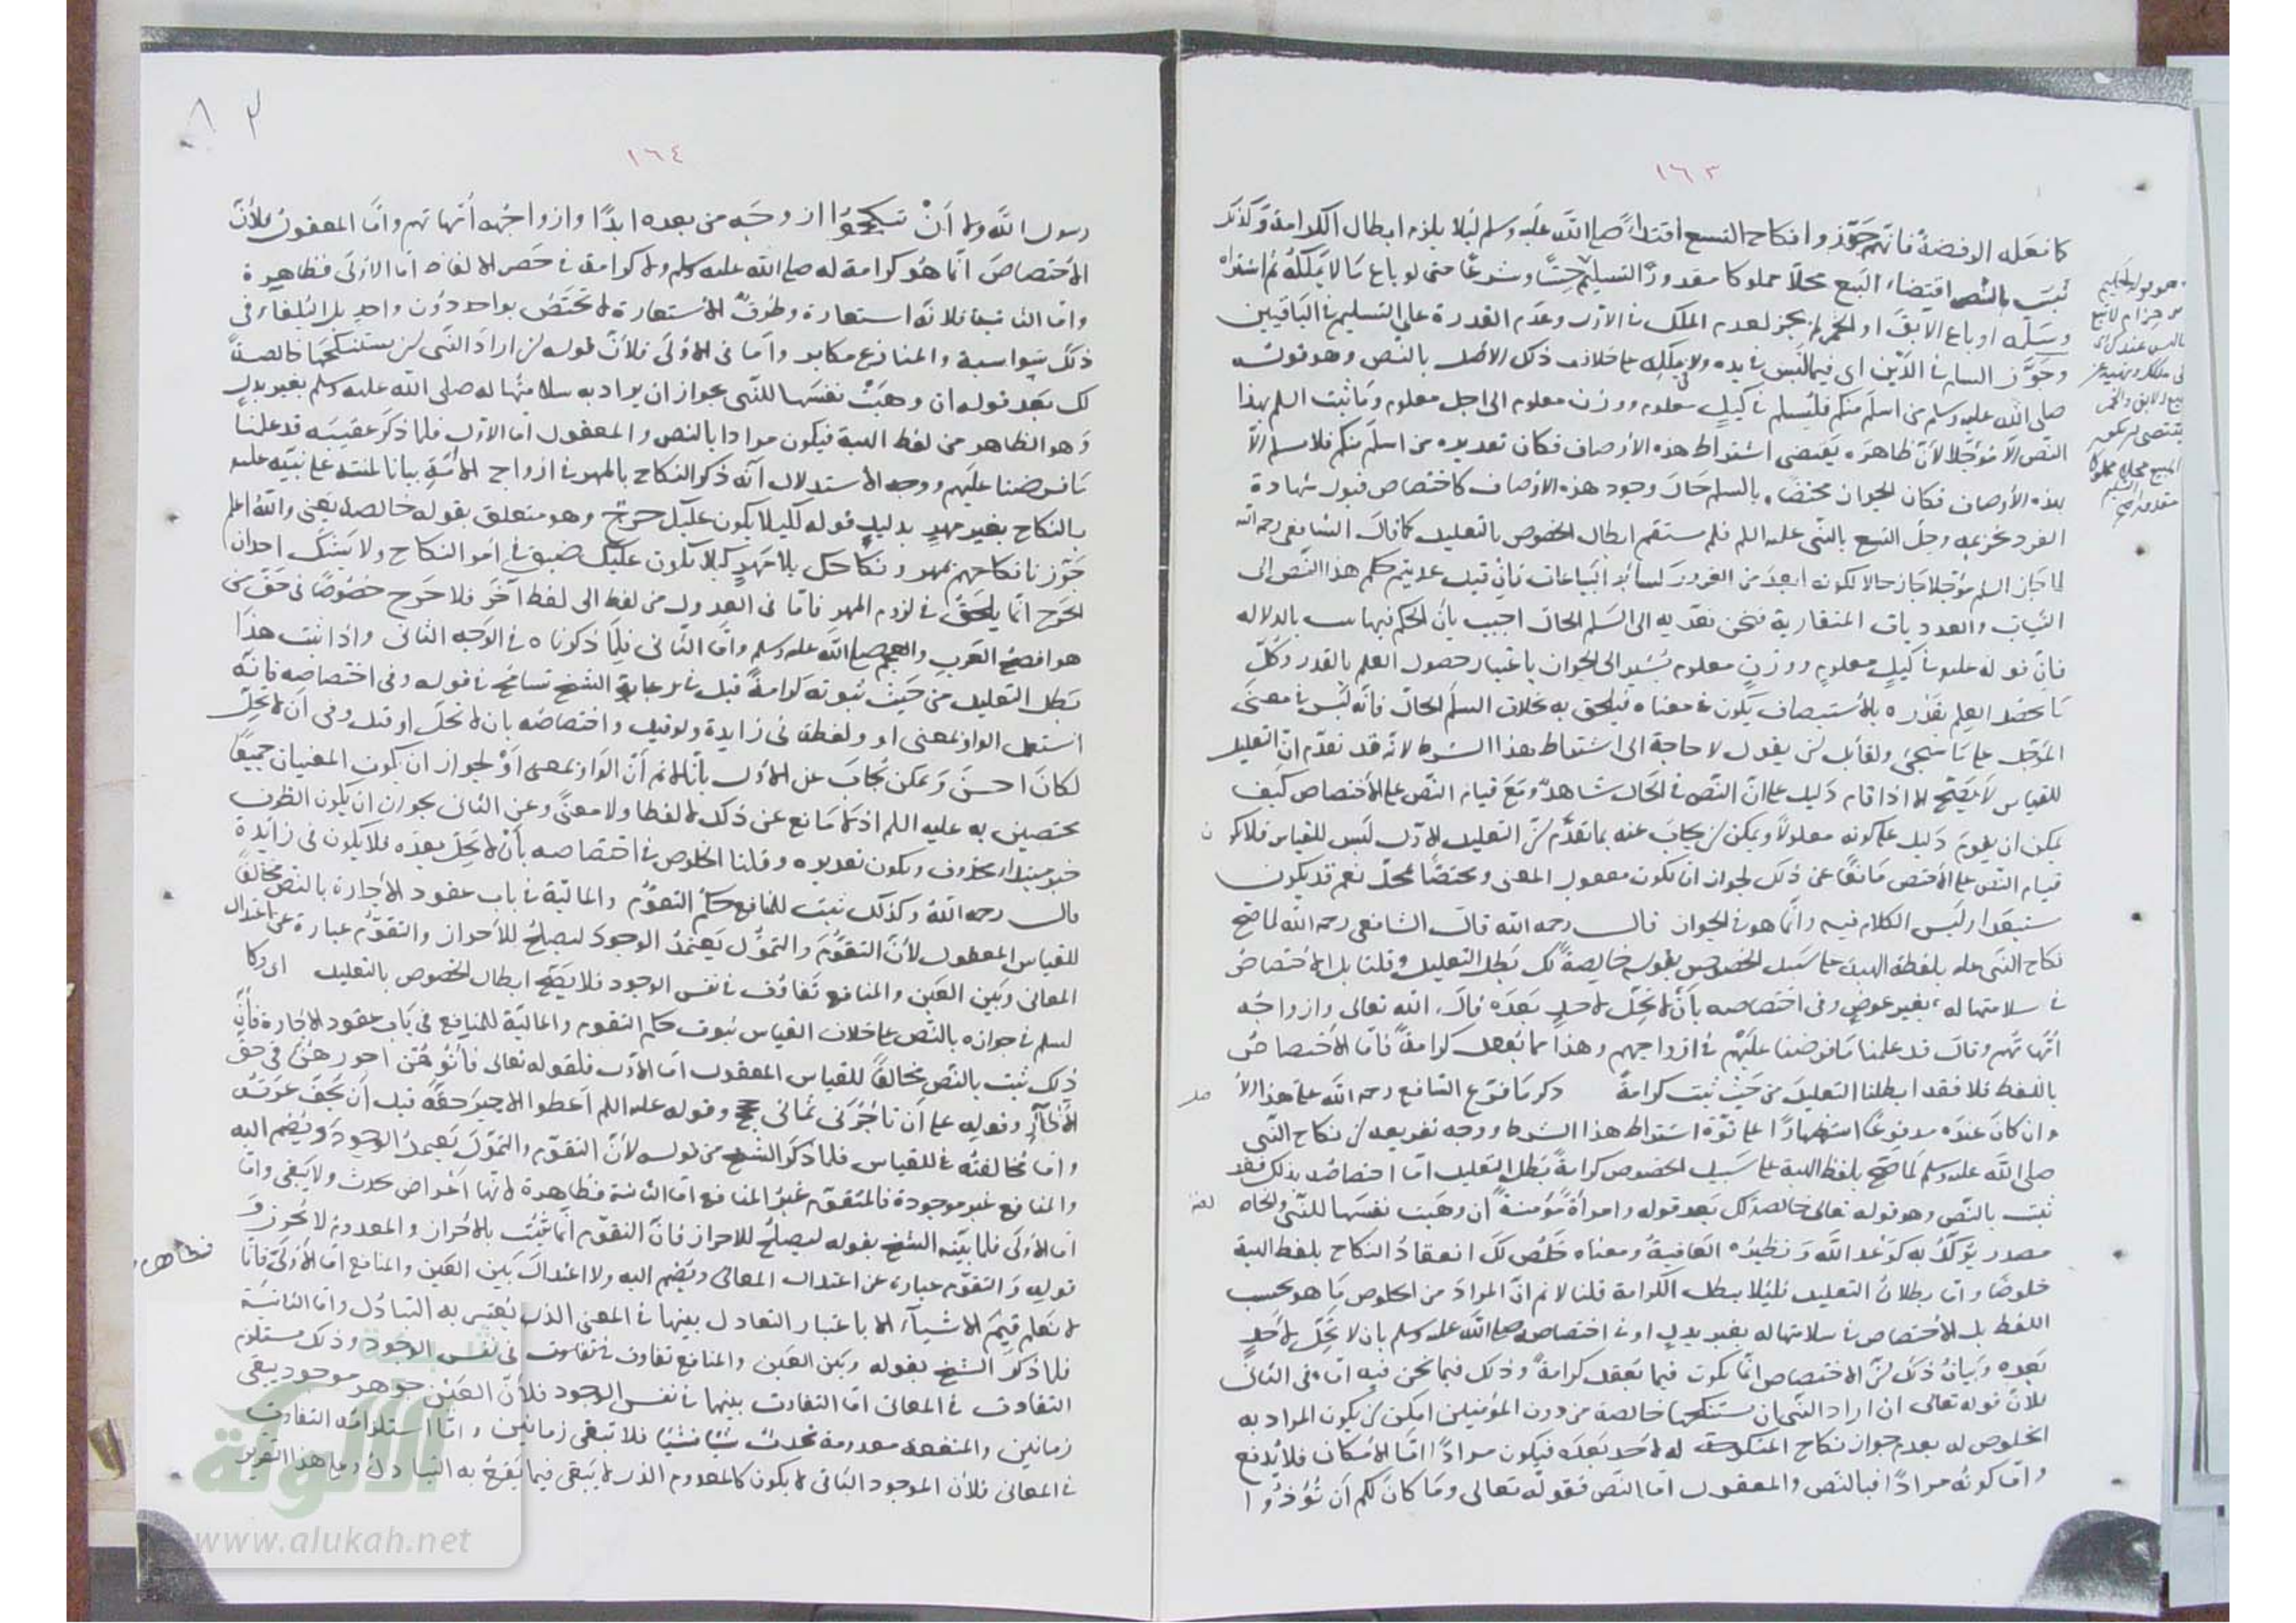 ١٦٣
كما فعله الرفضة فانهم جوزوا نكاح التسع اقتداءً صلى الله عليه وسلم لئلا يلزم ابطال الكرامة وكذلك
ثبت بالنص اقتضاء البيع محلا مملوكا مقدور التسليم حسًّا وشرعًا حتى لو باع ما لا يملكه ثم اشتراه
وسلمه او باع الآبق او الخمر لم يجز لعدم الملك في الأول وعدم القدرة على التسليم في الباقيين
وجوز السلم في الدين اي فيما ليس في يده ولا يملكه على خلاف ذلك الاصل بالنص وهو قوله
صلى الله عليه وسلم من اسلم منكم فليسلم في كيل معلوم ووزن معلوم الى اجل معلوم وما ثبت السلم بهذا
النص الا مؤجلا لأن ظاهره يقتضي اشتراط هذه الأوصاف فكان تقديره من اسلم منكم فلا يسلم الا
بهذه الأوصاف فكان الجواز مختصا بالسلم حال وجود هذه الاوصاف كاختصاص قبول شهادة
الفرد بخزيمة وحل التسع بالنبي عليه السلم فلم يستقم ابطال الخصوص بالتعليل كما قال الشافعي رحمه الله
لما جاز السلم مؤجلا جاز حالا لكونه ابعد من الغرور كسائر البياعات فان قيل عديتم حكم هذا النص الى
الثياب والعدديات المتقاربة فنحن نعديه الى السلم الحال اجيب بأن الحكم فيها ثبت بالدلالة
فان قوله عليه في كيل معلوم ووزن معلوم يشير الى الجواز باعتبار حصول العلم بالقدر وكل
ما يحصل العلم بقدره بالأستيصاف يكون في معناه فيلحق به بخلاف السلم الحال فانه ليس في معنى
المؤجل على ما سيجئ ولقائل ان يقول لا حاجة الى اشتراط هذا الشرط لانه قد تقدم ان التعليل
للقياس لا يصح الا اذا قام دليل على ان النص في الحال شاهد ومع قيام النص على الأختصاص كيف
يمكن ان يقوم دليل على كونه معلولا ويمكن ان يجاب عنه بما تقدم ان التعليل الاول ليس للقياس فلا يكون
قيام النص على الأختص مانعًا عن ذلك لجواز ان يكون معقول المعنى ومختصًا بمحل نعم قد يكون
مستبعدا وليس الكلام فيه وانما هو في الجواز قال رحمه الله قال الشافعي رحمه الله لما صح
نكاح النبي عليه بلفظة الهبة على سبيل الخصوص بقوله خالصة لك بطل التعليل وقلنا بل الاختصاص
في سلامتها له بغير عوض وفي اختصاصه بأن لا تحل لاحد بعده قال الله تعالى وازواجه
أمهاتهم وقال قد علمنا ما فرضنا عليهم في ازواجهم وهذا مما يعقل كرامة فاما الأختصاص
باللفظ فلا فقد ابطلنا التعليل من حيث ثبت كرامة ذكر ما فرع الشافع رحمه الله على هذا الأصل
وان كان عنده مدفوعًا استظهارًا على قوة اشتراط هذا الشرط ووجه تفريعه ان نكاح النبي
صلى الله عليه وسلم لما صح بلفظ الهبة على سبيل الخصوص كرامة بطل التعليل اما اختصاصه بذلك فقد
ثبت بالنص وهو قوله تعالى خالصة لك بعد قوله وامرأة مؤمنة ان وهبت نفسها للنبي
مصدر يؤكد به كوعد الله ونظيره العافية ومعناه خلص لك انعقاد النكاح بلفظ الهبة
خلوصا واما بطلان التعليل فلئلا يبطل الكرامة قلنا لا نم ان المراد من الخلوص ما هو بحسب
اللفظ بل الأختصاص في سلامتها له بغير بدل او في اختصاصه صلى الله عليه وسلم بان لا تحل لاحد
بعده وبيان ذلك ان الاختصاص انما يكون فيما يعقل كرامة وذلك فيما نحن فيه اما في الثاني
فلان قوله تعالى ان اراد النبي ان يستنكحها خالصة من دون المؤمنين امكن ان يكون المراد به
الخلوص له بعدم جواز نكاح المنكوحة له لاحد بعده فيكون مرادًا اما الامكان فلا يدفع
واما كونه مرادًا فبالنص والمعقول اما النص فقوله تعالى وما كان لكم أن تؤذوا
١٦٤
رسول الله ولا أن تنكحوا ازوجه من بعده ابدًا وازواجه أمهاتهم واما المعقول فلأن
الأختصاص انما هو كرامة له صلى الله عليه وسلم ولا كرامة في حصر الالفاظ اما الاولى فظاهرة
واما الثانية فلانه استعارة وطرق الأستعارة لا تختص بواحد دون واحد بل البلغاء في
ذلك سواسية والمنازع مكابر واما في الأولى فلأن قوله ان اراد النبي ان يستنكحها خالصة
لك بعد قوله ان وهبت نفسها للنبي بجواز ان يراد به سلامتها له صلى الله عليه وسلم بغير بدل
وهو الظاهر من لفظ الهبة فيكون مرادا بالنص والمعقول اما الاول فلما ذكر عقيبه قد علمنا
ما فرضنا عليهم ووجه الأستدلال انه ذكر النكاح بالمهر في ازواج الأمة بيانا لمنته على نبيه عليه
بالنكاح بغير مهر بدليل قوله لكيلا يكون عليك حرج وهو متعلق بقوله خالصة يعني والله اعلم
جوزنا نكاحهم بمهر ونكاحك بلا مهر كيلا يكون عليك ضيق في أمر النكاح ولا يشك احد ان
الحرج انما يلحق في لزوم المهر فاما في العدول من لفظ الى لفظ آخر فلا حرج خصوصًا في حق من
هو افصح العرب والعجم صلى الله عليه وسلم واما الثاني فلما ذكرناه في الوجه الثاني واذا ثبت هذا
بطل التعليل من حيث ثبوته كرامة قيل في عبارة الشيخ تسامح في قوله وفي اختصاصه فانه
استعمل الواو بمعنى او ولفظة في زايدة ولو قيل واختصاصه بان لا تحل او قيل وفي ان لا تحل
لكان احسن ويمكن يجاب عن الأول بانا لا نم أن الواو بمعنى أو لجواز ان يكون المعنيان جميعًا
مختصين به عليه السلم اذ لا مانع عن ذلك لا لفظا ولا معنى وعن الثاني بجواز ان يكون الظرف
خبر مبتدا محذوف ويكون تقديره وقلنا الخلوص في اختصاصه بأن لا تحل بعده فلا يكون في زائدة
قال رحمه الله وكذلك ثبت للمنافع حكم التقوم والمالية في باب عقود الأجارة بالنص مخالفا
للقياس المعقول لأن التقوم والتمول يعتمد الوجود ليصلح للأحراز والتقوم عبارة عن اعتدال
المعاني وبين العين والمنافع تفاوت في نفس الوجود فلا يصح ابطال الخصوص بالتعليل اي وكا
لسلم في جوازه بالنص على خلاف القياس ثبوت حكم التقوم والمالية للمنافع في باب عقود الاجارة فان
ذلك ثبت بالنص مخالفًا للقياس المعقول اما الأول فلقوله تعالى فأتوهن اجورهن في حق
الأظآر وقوله على أن تأجرني ثماني حجج وقوله عليه السلم أعطوا الاجير حقه قبل أن يجف عرقه
واما مخالفته للقياس فلما ذكر الشيخ من قوله لأن التقوم والتمول يعتمد الوجود ويضم اليه
والمنافع غير موجودة فالمتقوم غير المنافع اما الثانية فظاهرة لانها أعراض تحدث ولا يبقى واما
اما الأولى فلما بينه الشيخ بقوله ليصلح للاحراز فان التقوم انما يثبت بالأحراز والمعدوم لا يحرز و
قوله والتقوم عبارة عن اعتدال المعاني ويضم اليه ولا اعتدال بين العين والمنافع اما الأولى فانا
فظاهر
لا نعلم قيم الاشياء الا باعتبار التعادل بينها في المعنى الذي يعتبر به التبادل واما الثانية
فلما ذكر الشيخ بقوله وبين العين والمنافع تفاوت في نفس الوجود وذلك مستلزم
التفاوت في المعاني اما التفاوت بينها في نفس الوجود فلأن العين جوهر موجود يبقى
زمانين والمنفعة معدومة تحدث شيئا فشيئا فلا تبقى زمانين واما استلزامه التفاوت
في المعاني فلأن الموجود الباقي لا يكون كالمعدوم الذي لا يبقى فيما يقع به التبادل وعلى هذا التقرير
الألوكة
www.alukah.net